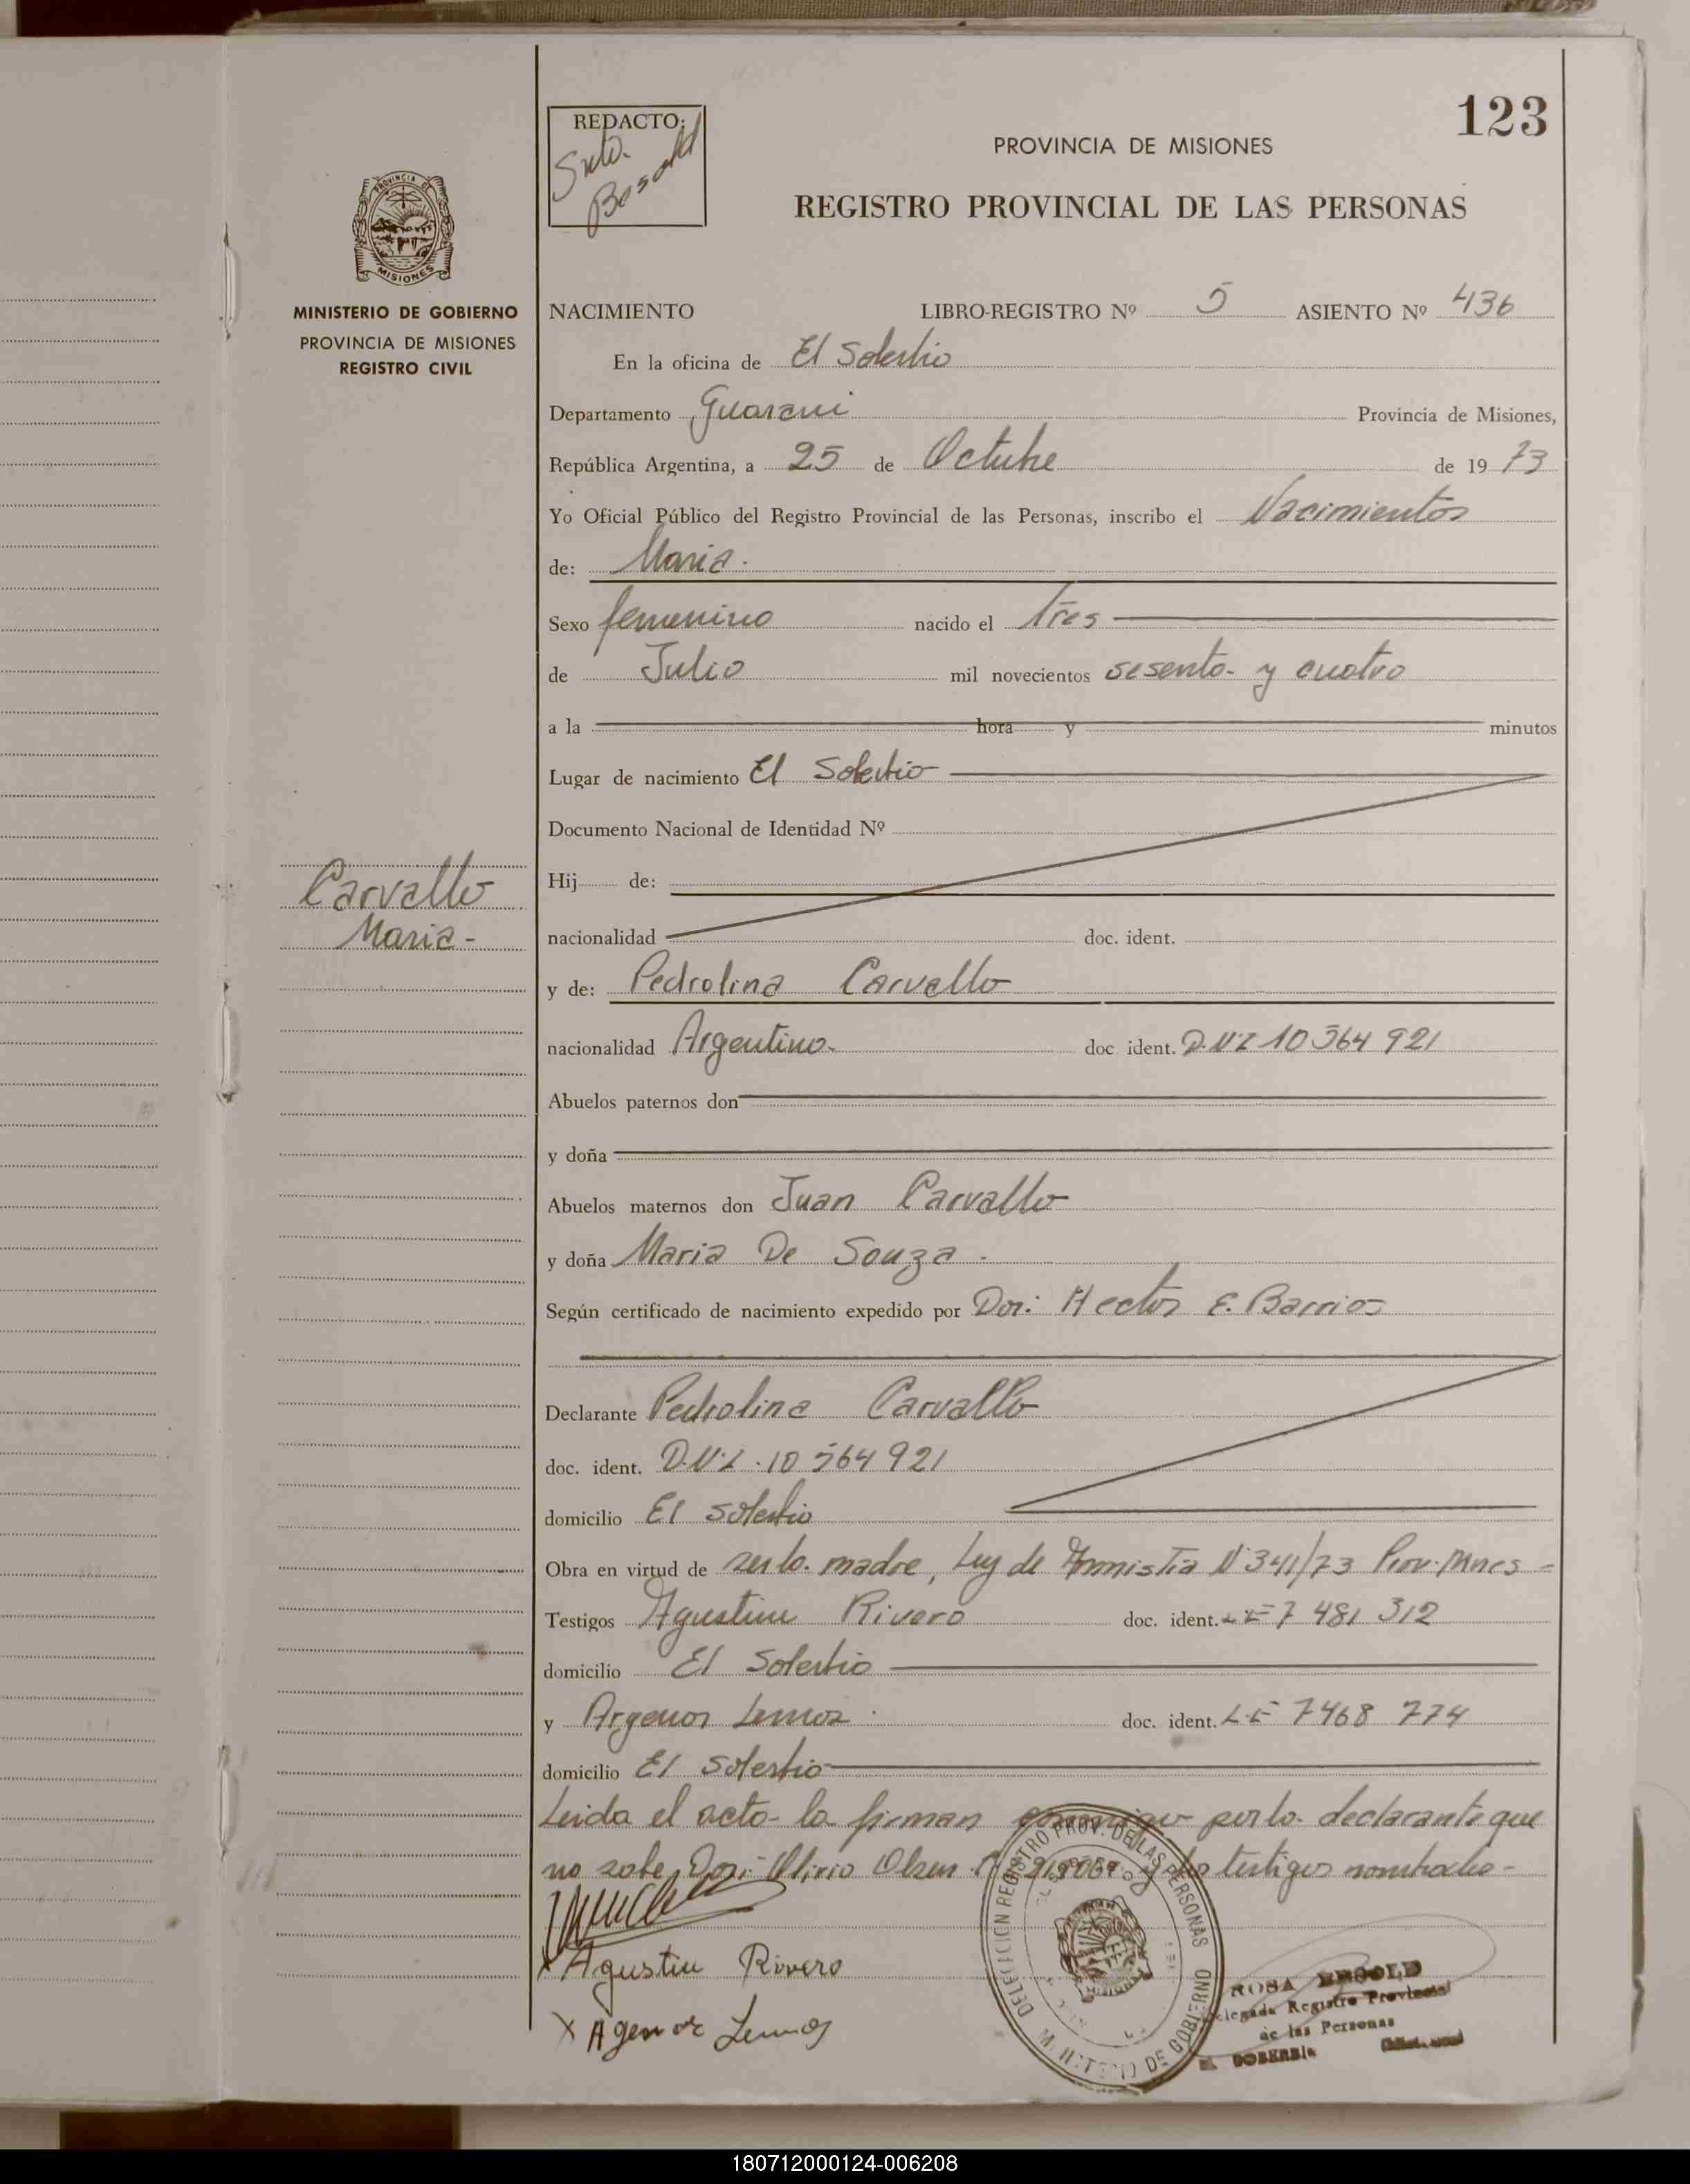 123
REDACTO:
PROVINCIA DE MISIONES
REGISTRO PROVINCIAL DE LAS PERSONAS
PROVINCIA DE
MISIONES
MINISTERIO DE GOBIERNO
PROVINCIA DE MISIONES
REGISTRO CIVIL
NACIMIENTO LIBRO-REGISTRO Nº 5 ASIENTO Nº 436
En la oficina de El Soberbio
Departamento Guarani Provincia de Misiones,
República Argentina, a 25 de Octubre de 1973
Yo Oficial Público del Registro Provincial de las Personas, inscribo el Nacimientos
de: Maria.
Sexo femenino nacido el Tres
de Julio mil novecientos sesenta y cuatro
a la hora y minutos
Lugar de nacimiento El Soberbio
Documento Nacional de Identidad Nº
Hij de:
Carvallo
Maria -
nacionalidad doc. ident.
y de: Pedrolina Carvallo
nacionalidad Argentina. doc ident. D.N.I 10 564 921
Abuelos paternos don
y doña
Abuelos maternos don Juan Carvallo
y doña Maria De Souza.
Según certificado de nacimiento expedido por Dor: Hector E. Barrios
Declarante Pedrolina Carvallo
doc. ident. D.N.I. 10 564 921
domicilio El Soberbio
Obra en virtud de ser la madre, Ley de Amnistia Nº 341/73 Prov. Mnes =
Testigos Agustin Rivero doc. ident. LE 7 481 312
domicilio El Soberbio
y Argenor Lemos. doc. ident. LE 7468 774
domicilio El Soberbio
Leida el acta la firman conmigo por la declarante que
no sabe, Olirio Olsen y los testigos nombrados -
Agustin Rivero
X Agenor Lemos
DELEGACION REGISTRO PROV. DE LAS PERSONAS
MINISTERIO DE GOBIERNO
ROSA
Delegada Registro Provincial
de las Personas
SOBERBIO
180712000124-006208